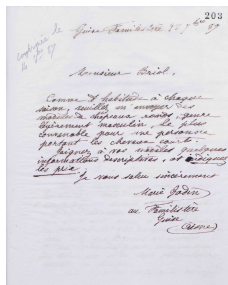 203
Guise Familistère 28 7bre 89
Monsieur Briol.
Comme d'habitude à chaque
saison, veuillez m'envoyer des
modèles de chapeaux ronds, genre
légèrement masculin, le plus
convenable pour une personne
portant les cheveux courts.
Joignez à vos modèles quelques
informations descriptives, et indiquez
les prix.
Je vous salue sincèrement
Marie Godin
au Familistère
Guise
(Aisne)